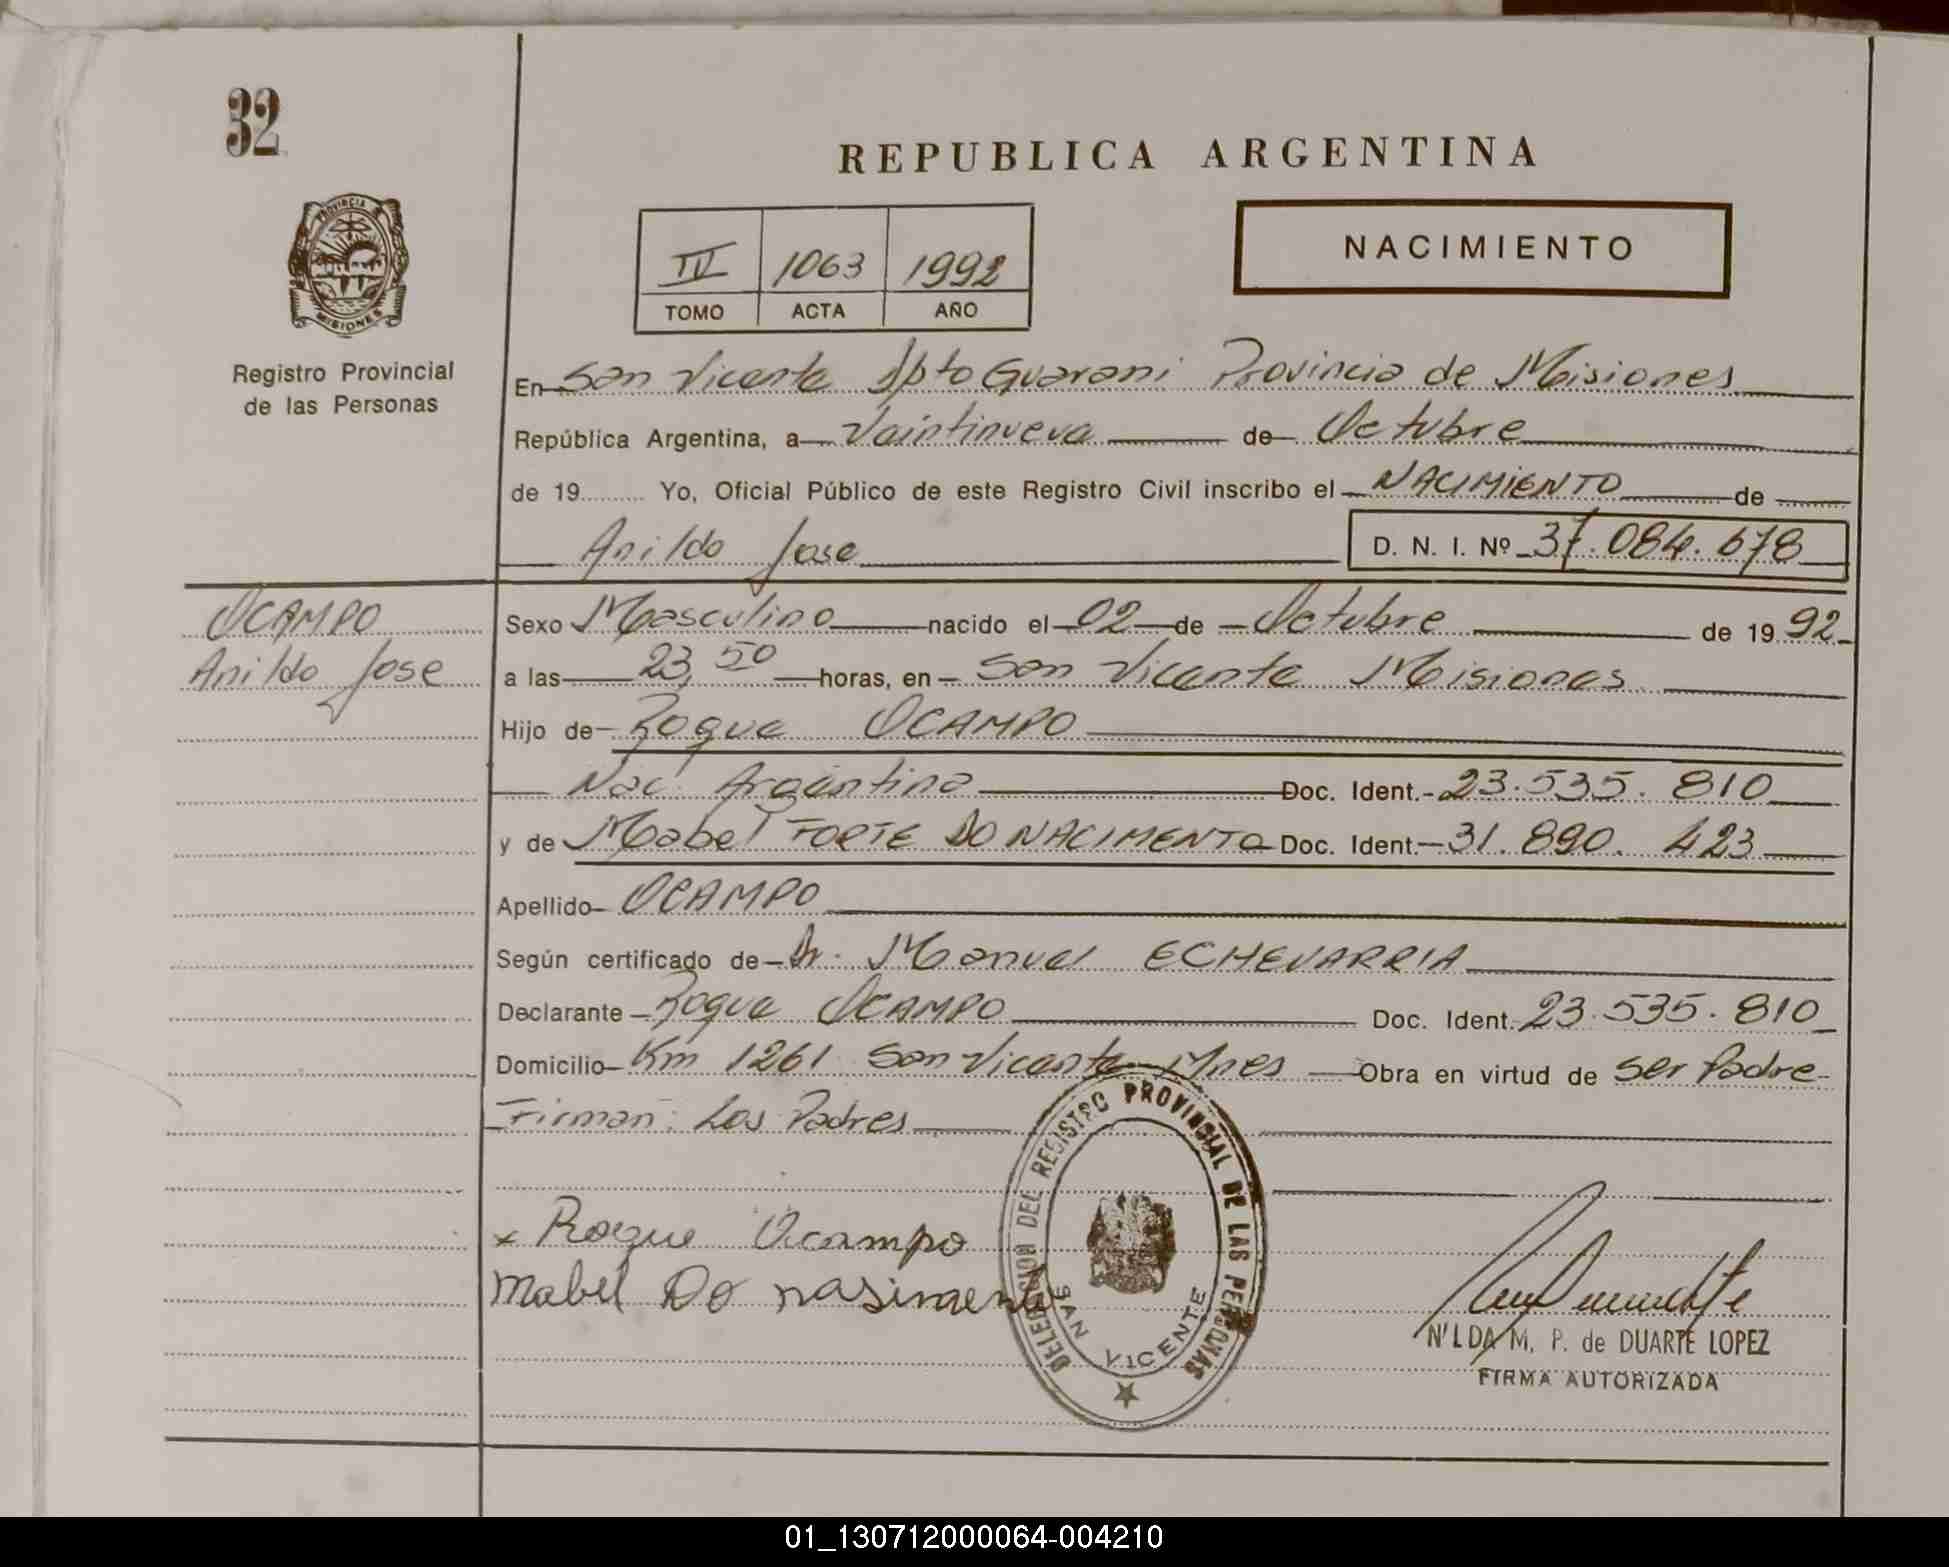 32
REPUBLICA ARGENTINA
PROVINCIA
MISIONES
Registro Provincial
de las Personas
IV 1063 1992
TOMO ACTA AÑO
NACIMIENTO
En San Vicente Dpto Guarani Provincia de Misiones
República Argentina, a Veintinueve de Octubre
de 19 Yo, Oficial Público de este Registro Civil inscribo el NACIMIENTO de
Anildo Jose D. N. I. Nº 37.084.678
OCAMPO
Anildo Jose
Sexo Masculino nacido el 02 de Octubre de 19 92
a las 23,50 horas, en San Vicente Misiones
Hijo de Roque OCAMPO
Nac. Argentina Doc. Ident. 23.535.810
y de Mabel FORTE DO NACIMENTO Doc. Ident. 31.890.423
Apellido OCAMPO
Según certificado de Dr. Manuel ECHEVARRIA
Declarante Roque OCAMPO Doc. Ident. 23.535.810
Domicilio Km 1261 San Vicente Mnes Obra en virtud de ser Padre
Firman: Los Padres
x Roque Ocampo
Mabel Do nasimento
DELEGACION DEL REGISTRO PROVINCIAL DE LAS PERSONAS
SAN VICENTE
N'LDA M. P. de DUARTE LOPEZ
FIRMA AUTORIZADA
01_130712000064-004210